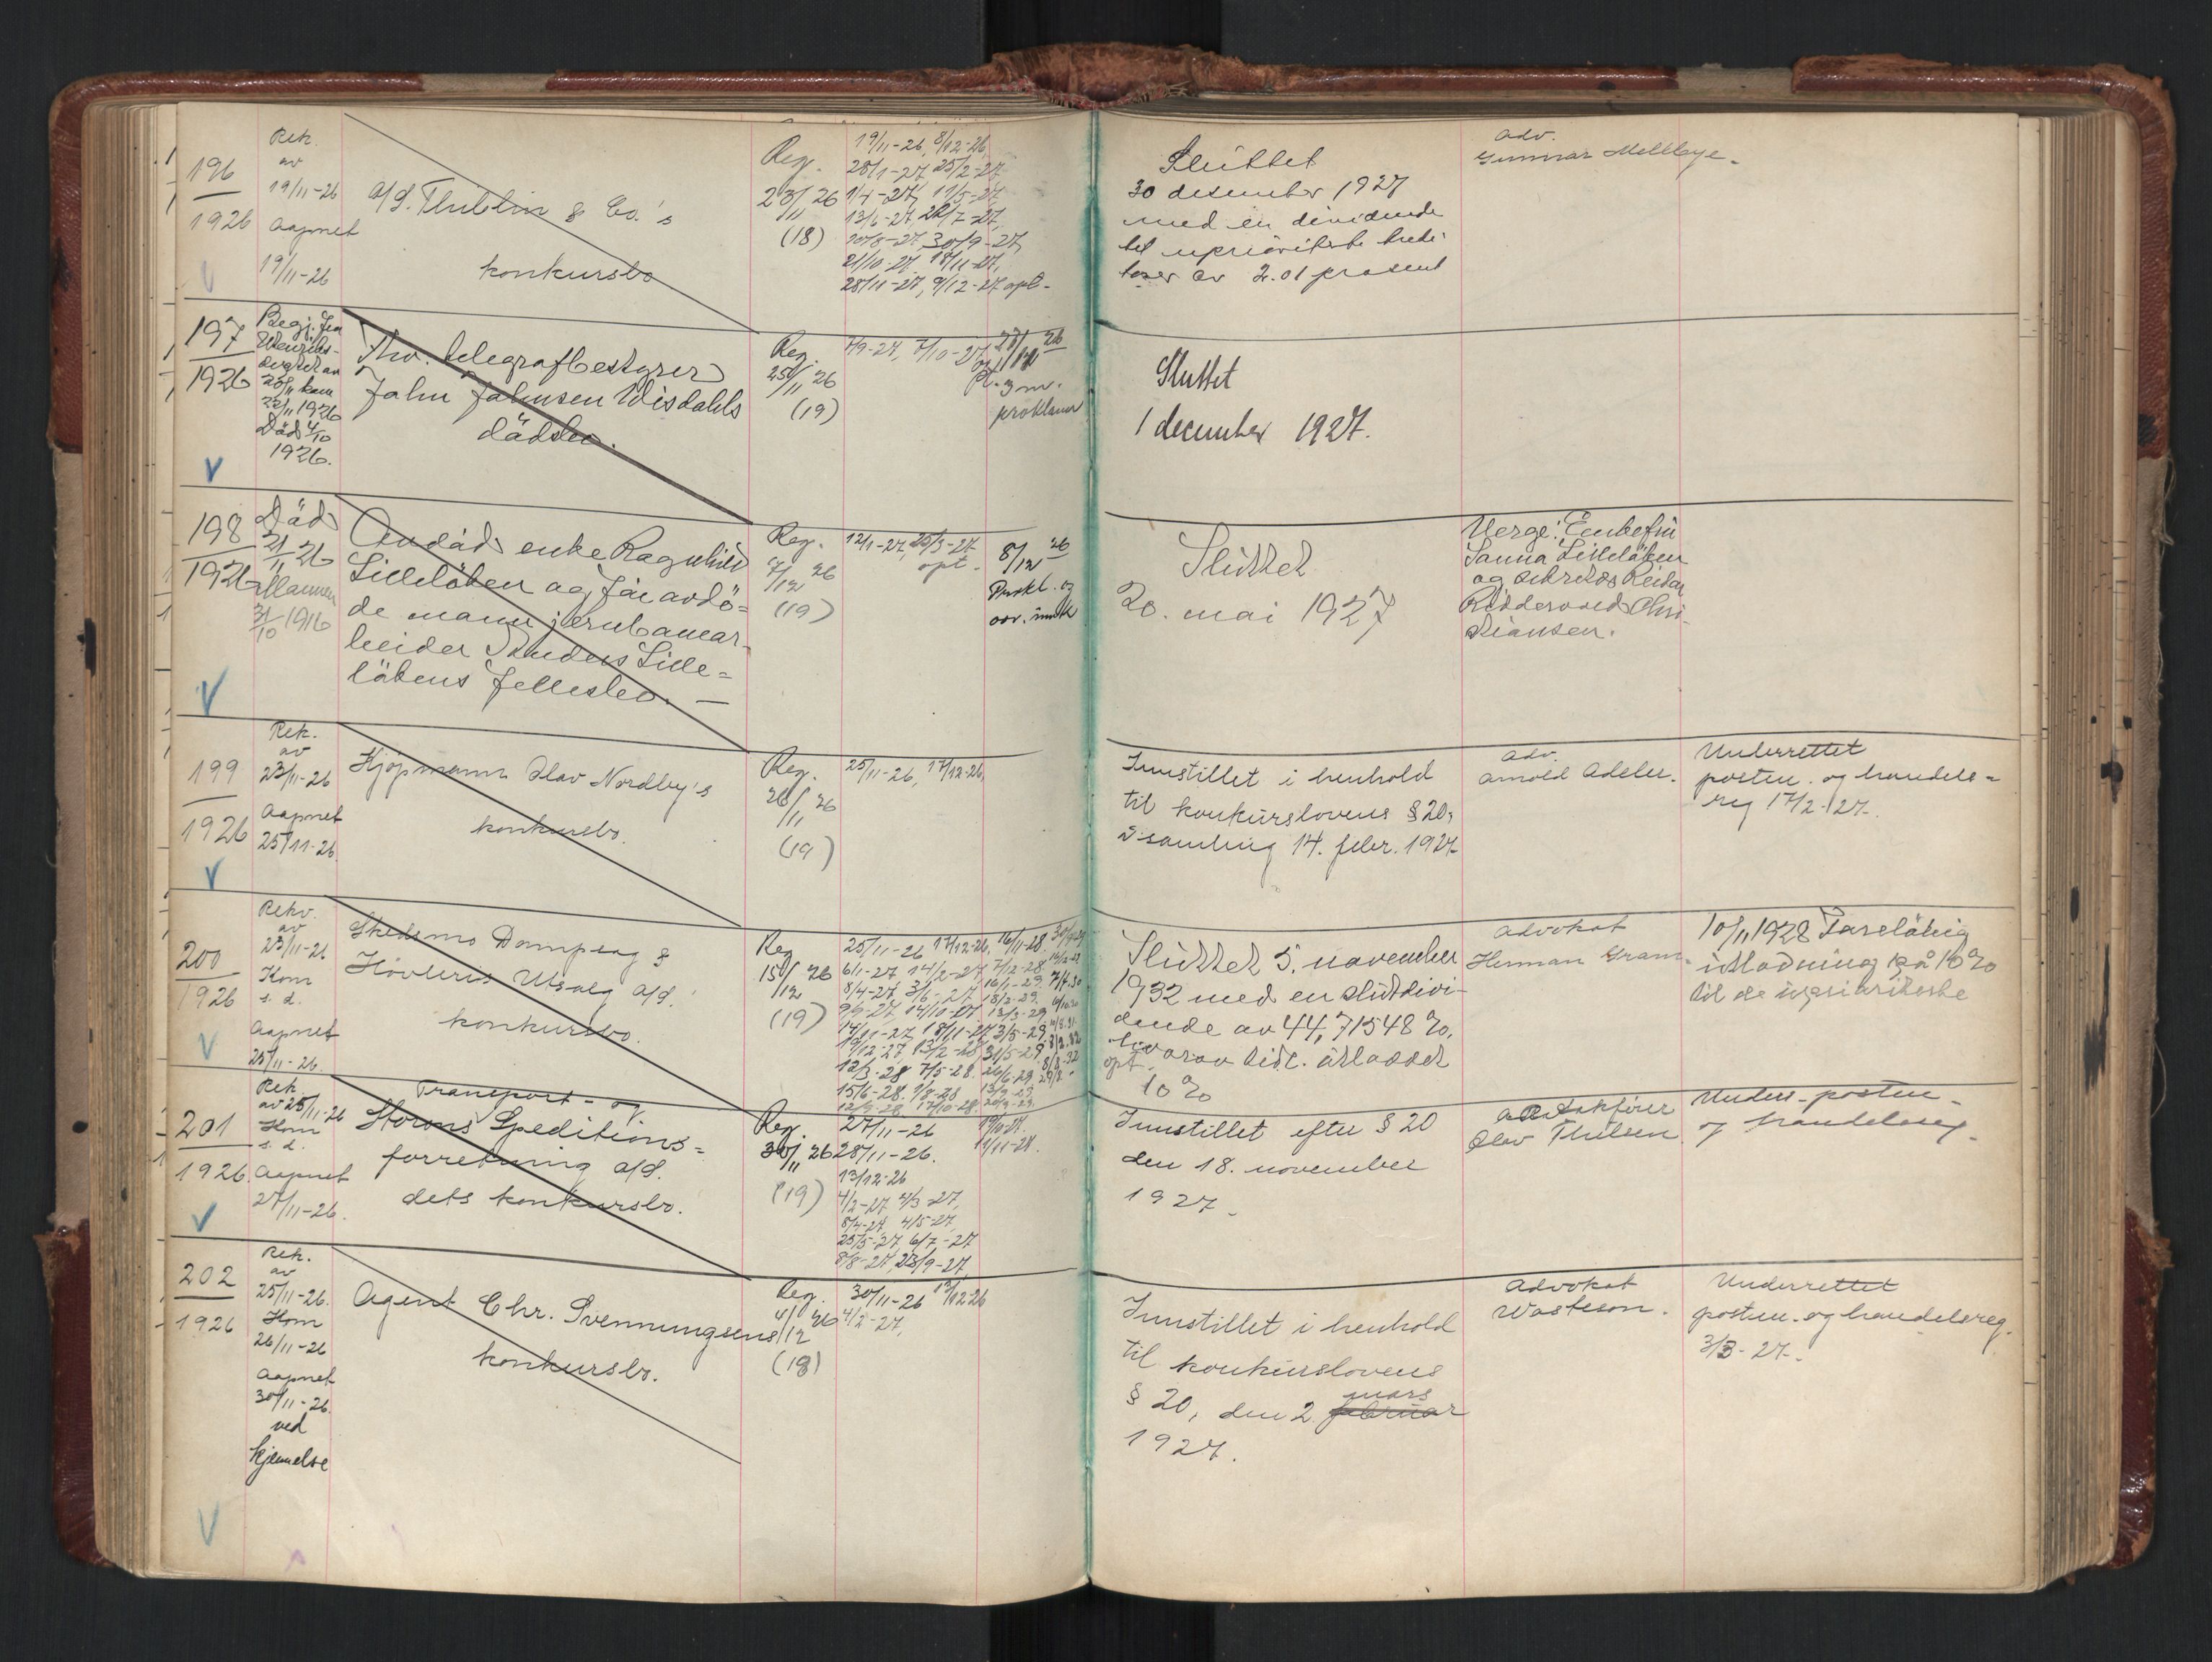 196
1926
Rek.
av
19/11-26
Aapnet
19/11-26
A/S. Thublin & Co.'s
konkursbo
Reg.
23/11 26
(18)
19/11-26, 8/12-26
28/1-27, 25/2-27
1/4-27, 11/5-27,
13/6-27, 22/7-27,
30/9-27,
21/10-27, 18/11-27,
28/11-27, 9/12-27 opt.-
Sluttet
30 desember 1927
med en dividende
til uprioriterte kredi-
torer av 2.01 prosent
Adv.
Gunnar Mellbye.
197
1926
Begj. fra
20/11 kom
22/11 1926
Död 4/10
1926.
Fhv. telegrafbestyrer
John Johnsen Wisdahls
dödsbo.
Reg.
25/11 26
(19)
7/9-27, 7/10-27,
27/11 26
proklama
Sluttet
1 december 1927.
198
1926
Död
21/11 26
Mannen
3/10 1916
Avdöd enke Ragnhild
Lillelöken og för avdö-
de mann jernbanear-
beider Anders Lille-
lökens fellesbo. —
Reg.
7/12 26
(19)
12/1-27, 25/3-27
opt.
8/12 26
Prokl. og
Sluttet
20. mai 1927
Verge: Enkefru
Sanna Lillelöken
og Reidar
Riddervold Chri-
stiansen.
199
1926
Rek.
av
23/11-26
Aapnet
25/11-26.
Kjöpmann Olav Nordby's
konkursbo.
Reg.
26/11 26
(19)
25/11-26, 17/12-26,
Innstillet i henhold
til konkurslovens § 20,
i samling 14. febr. 1927
Adv.
Arnold Adeler.
Underrettet
postm. og handels-
reg 17/2-27.
200
1926
Rekv.
av
23/11-26
Kom
s. d.
Aapnet
25/11-26.
Skedsmo Dampsag &
Hövleris Utsalg A/S.'
konkursbo.
Reg
15/12 26
(19)
25/11-26 17/12-26, 16/11-28.
6/1-27, 14/2-27 7/12-28
8/4-27, 3/6-27 18/2-29.
9/9-27, 14/10-27, 15/3-29
14/11-27, 18/11-27 3/5-29
19/12-27, 13/2-28 31/5-29
12/3-28 7/5-28. 26/6-29
15/6-28. 1/8-28
12/9-28 17/10-28
Sluttet 5. november
1932 med en sluttdivi-
dende av 44,71548 %,
hvorav tidl. utloddet
opt.
10 %
Advokat
Herman Gram.
10/11 1928 Forelöbig
utlodning på 10 %
til de uprioriterte
201
1926.
Rek.
av 25/11-26
Kom
s. d.
Aapnet
27/11-26.
Transport- og
Speditions-
forretning A/S.
dets konkursbo.
Reg.
30/11 26
(19)
27/11-26
28/11-26.
13/12-26
4/2-27 4/3-27,
8/4-27, 4/5-27,
25/5-27, 6/7-27
8/8-27, 23/9-27
11/11-27.
Innstillet efter § 20
den 18. november
1927.
Underr. postm.-
og handelsreg.
202
1926
Rek.
av
25/11-26.
Kom
26/11-26
Aapnet
30/11-26.
ved
kjennelse
Agent Chr. Svenningsens
konkursbo.
Reg.
4/12 26
(18)
30/11-26 13/12-26
4/2-27,
Innstillet i henhold
til konkurslovens
mars
§ 20, den 2. februar
1927.
Advokat
Wasteson.
Underrettet
postm. og handelsreg.
3/3-27.